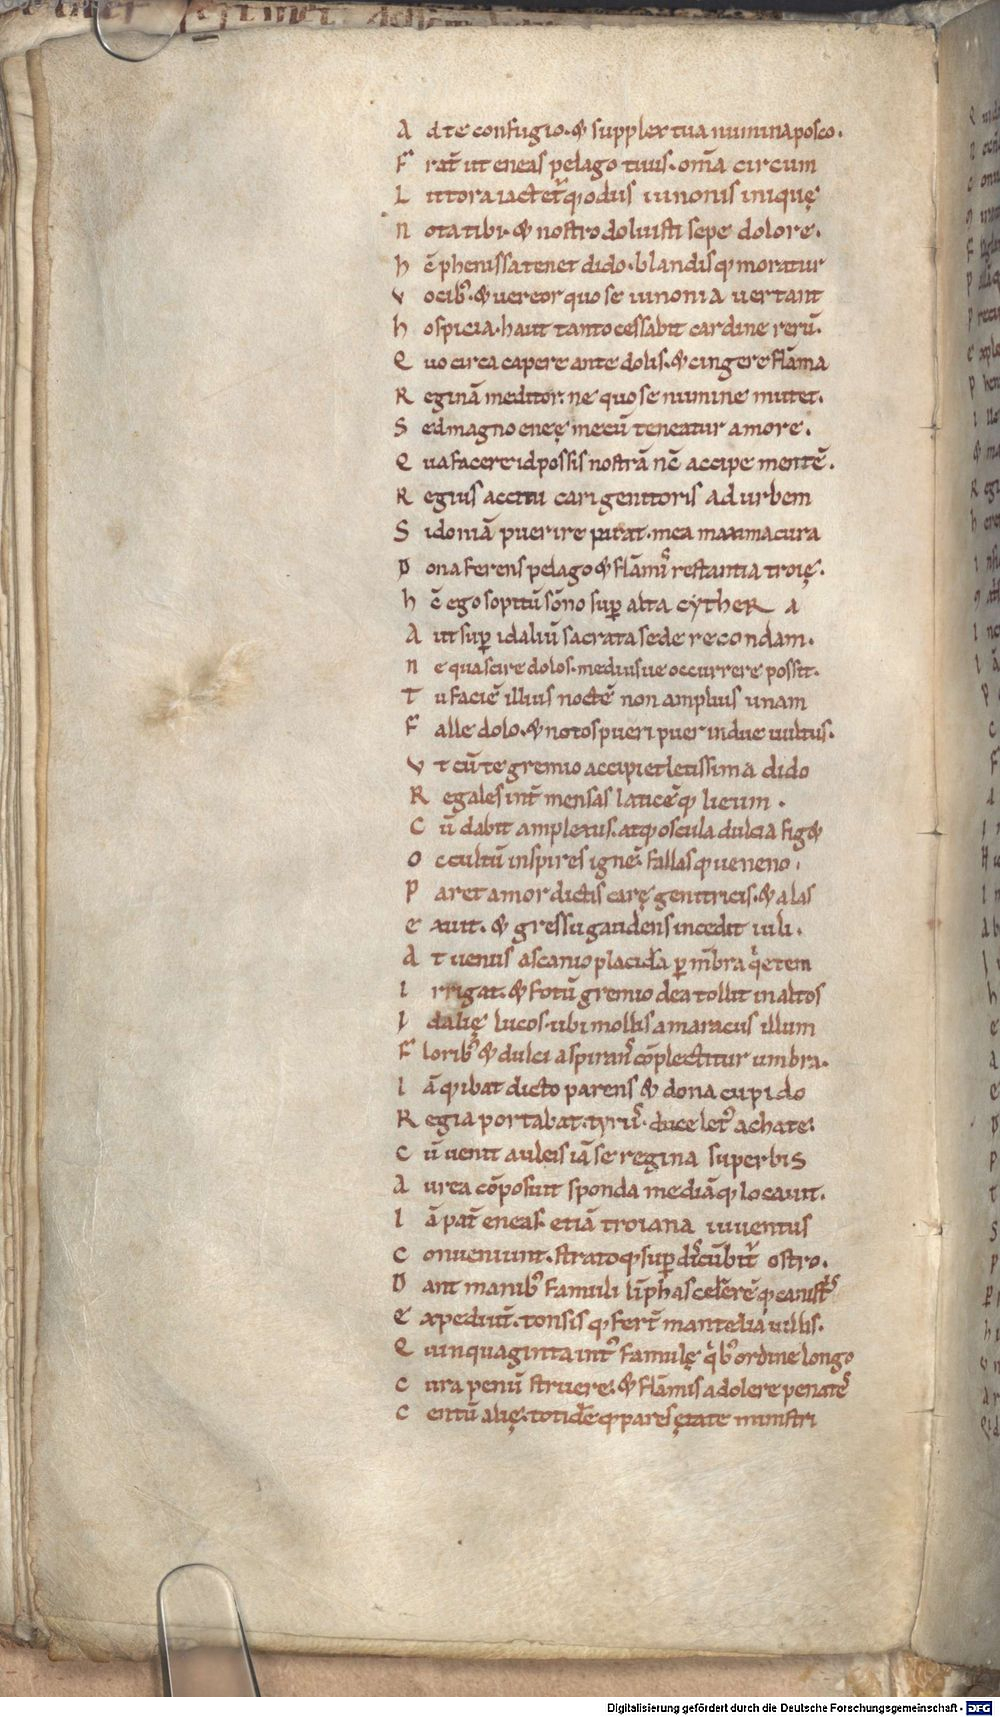 A d te confugio·& supplex tua numina posco.
F rat̄ ut eneas pelago tuus·om̄ia circum
L ittora iactet̄ q; odiis iunonis iniquę
N ota tibi·& nostro doluisti sepe dolore.
h c̄ phenissa tenet dido·blandis q; moratur
V ocib; ·& uereor quo se iunonia uertant
h ospicia·haut tanto cessabit cardine rerū.
Q uo circa capere ante dolis·& cingere flāma
R eginā meditor· ne quo se numine mutet.
S ed magno eneę mecū teneatur amore.
Q ua facere id possis nostrā nc̄ accipe mentē.
R egius accitu cari genitoris ad urbem
S idoniā puer ire parat·mea maxima cura
D ona ferens pelago & flāmis restantia troię.
h c̄ ego sopitū sōno sup̄ alta cytheR a
A ut sup̄ idaliū sacrata sede recondam.
N e qua scire dolos·mediusue occurrere possit.
T u faciē illius noctē non amplius unam
F alle dolo·& notos pueri puer indue uultus.
V t cū te gremio accipiet letissima dido
R egales int̄ mensas laticē q; lieum.
C ū dabit amplexus·atq; oscula dulcia fig&
O ccultū inspires ignē· fallasq; ueneno.
P aret amor dictis carę genitricis·& alas
E xuit·& gressu gaudens incedit iuli.
A t uenus ascanio placidā p̄ mēbra q̇etem
I rrigat·& fotū gremio dea tollit in altos
I dalię lucos·ubi mollis amaracus illum
F lorib; & dulci aspirans cōplectitur umbra.
I āq; ibat dicto parens & dona cupido
R egia portabat·tyriis·duce letus achate.
C ū uenit auleis iā se regina superbis
A urea cōposuit sponda mediāq; locauit.
I ā pat̄ eneas·etiā troiana iuuentus
C onueniunt·stratoq; sup̄ discūbitur ostro.
D ant manib; famuli līphas cererēq; canistris
E xpediunt̄·tonsisq; fert̄ mantelia uillis.
Q uinquaginta int; famulę q̇b; ordine longo
C ura penū struere·& flāmis adolere penates
C entū alię·totidēq; pares ętate ministri
Digitalisierung gefördert durch die Deutsche Forschungsgemeinschaft - DFG